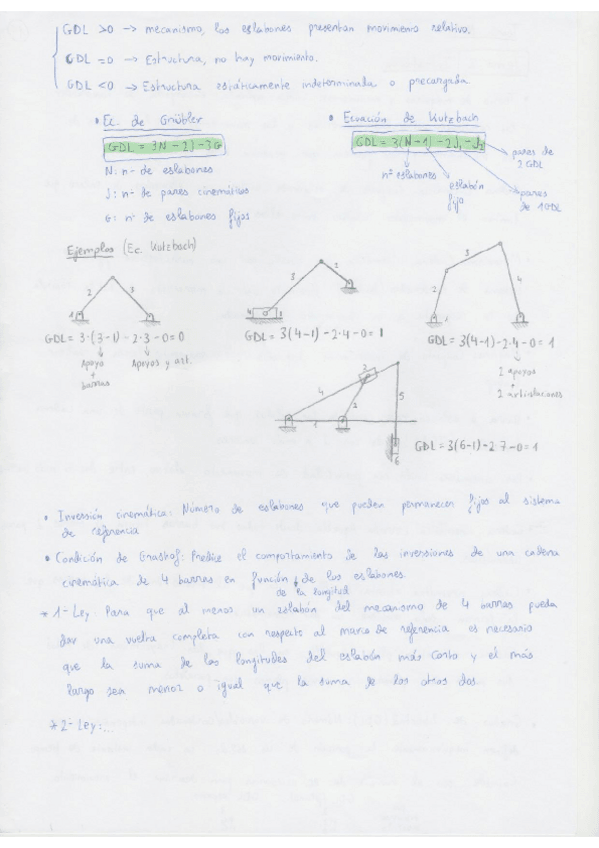 GDL >0 → mecanismo, los eslabones presentan movimiento relativo.
GDL =0 → Estructura, no hay movimiento.
GDL <0 → Estructura estáticamente indeterminada o precargada
• Ec. de Grübler
GDL = 3N - 2J - 3G
N: nº de eslabones
J: nº de pares cinemáticos
G: nº de eslabones fijos
• Ecuación de Kutzbach
GDL = 3(N-1) - 2J1 - J2
pares de 2 GDL
nº eslabones
eslabón fijo
pares de 1GDL
Ejemplos (Ec. Kutzbach)
1 2 3
GDL = 3·(3-1) - 2·3 - 0 = 0
Apoyo + barras
Apoyos y art.
4 3
GDL = 3(4-1) - 2·4 - 0 = 1
2 3 4
GDL = 3(4-1) - 2·4 - 0 = 1
2 apoyos
+
2 articulaciones
4 3 2 1 5 6
GDL = 3(6-1) - 2·7 - 0 = 1
• Inversión cinemática: Número de eslabones que pueden permanecer fijos al sistema
de referencia
• Condición de Grashof: Predice el comportamiento de las inversiones de una cadena
cinemática de 4 barras en función de la longitud de los eslabones.
* 1ª Ley: Para que al menos un eslabón del mecanismo de 4 barras pueda
dar una vuelta completa con respecto al marco de referencia es necesario
que la suma de las longitudes del eslabón más corto y el más
largo sea menor o igual que la suma de los otros dos.
* 2ª Ley:...